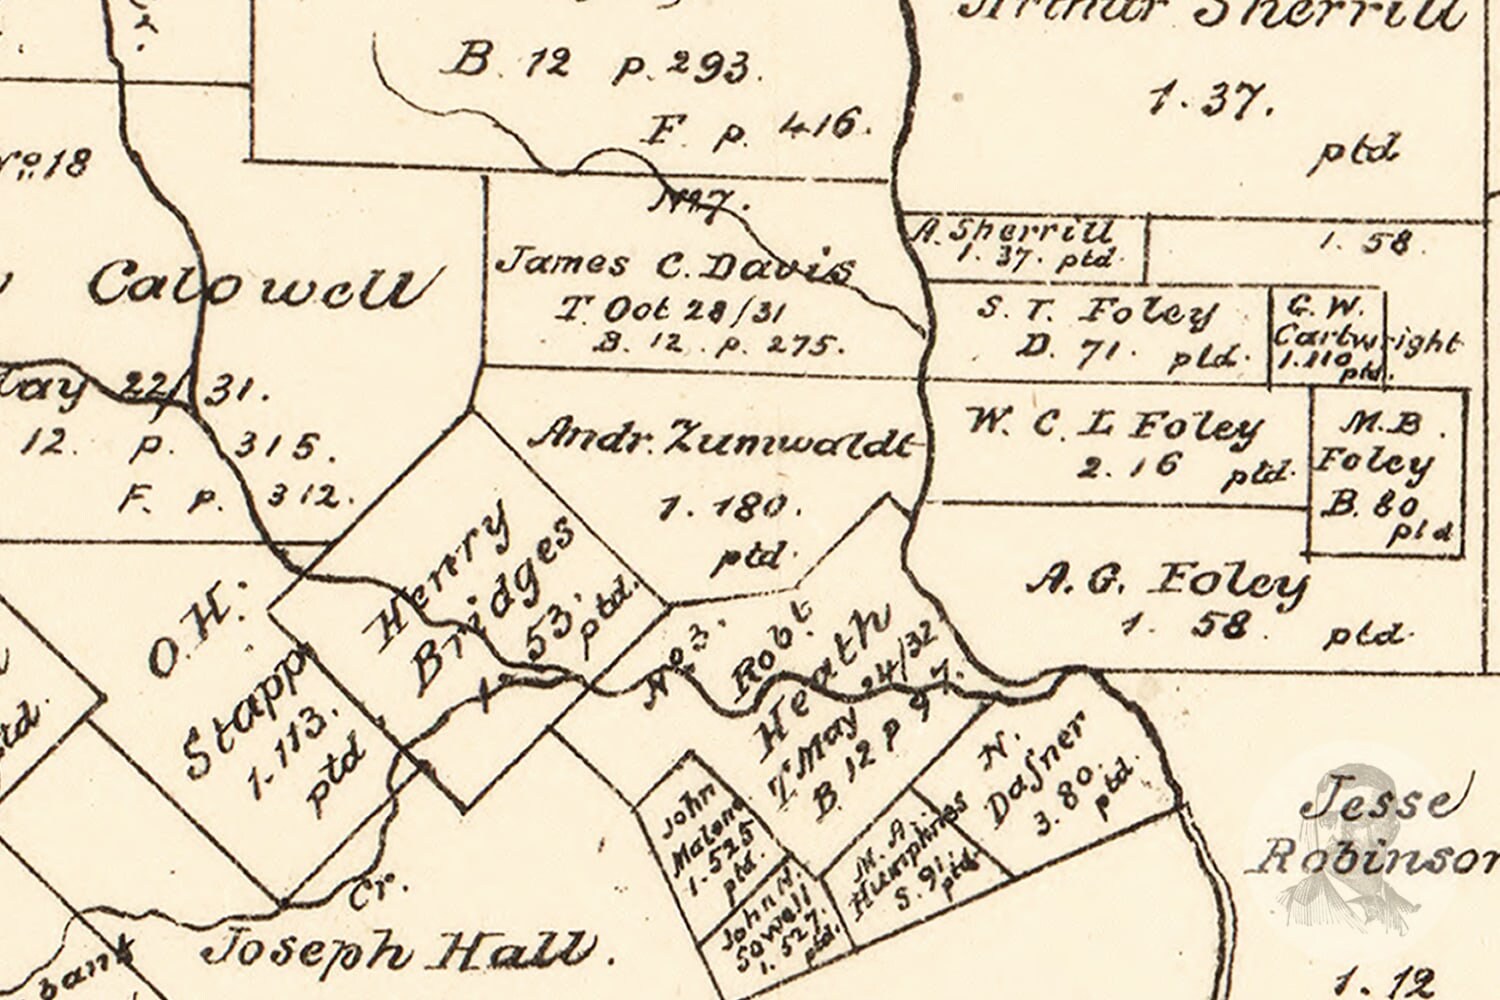 2.
B. 12 p. 293.
F. p. 416.
Arthur Sherrill
1. 37.
ptd
No. 18
No 7.
James C. Davis
T. Oct 28/31
B. 12. p. 275.
A. Sherrill
1. 37. ptd.
1. 58.
S. T. Foley
D. 71. ptd.
G. W.
Cartwright
1. 110
ptd.
Calowell
22/31.
12. p. 315.
F. p. 312.
Andr. Zumwaldt
1. 180.
ptd.
W. C. L Foley
2. 16 ptd.
M. B.
Foley
B. 80
ptd
A. G. Foley
1. 58. ptd.
O. H.
Stapp
1. 113.
ptd
Henry
Bridges
1. 53.
ptd.
No 3.
Robt.
Heath
T. May 24/32
B. 12 p 97.
N.
Dafner
3. 80.
ptd.
John
Malone
1. 525
ptd.
John N.
Sowell
1. 527.
ptd.
M. A.
Humphries
S. 91.
ptd.
Jesse
Robinson
1. 12
Cr.
Joseph Hall.
ptd.